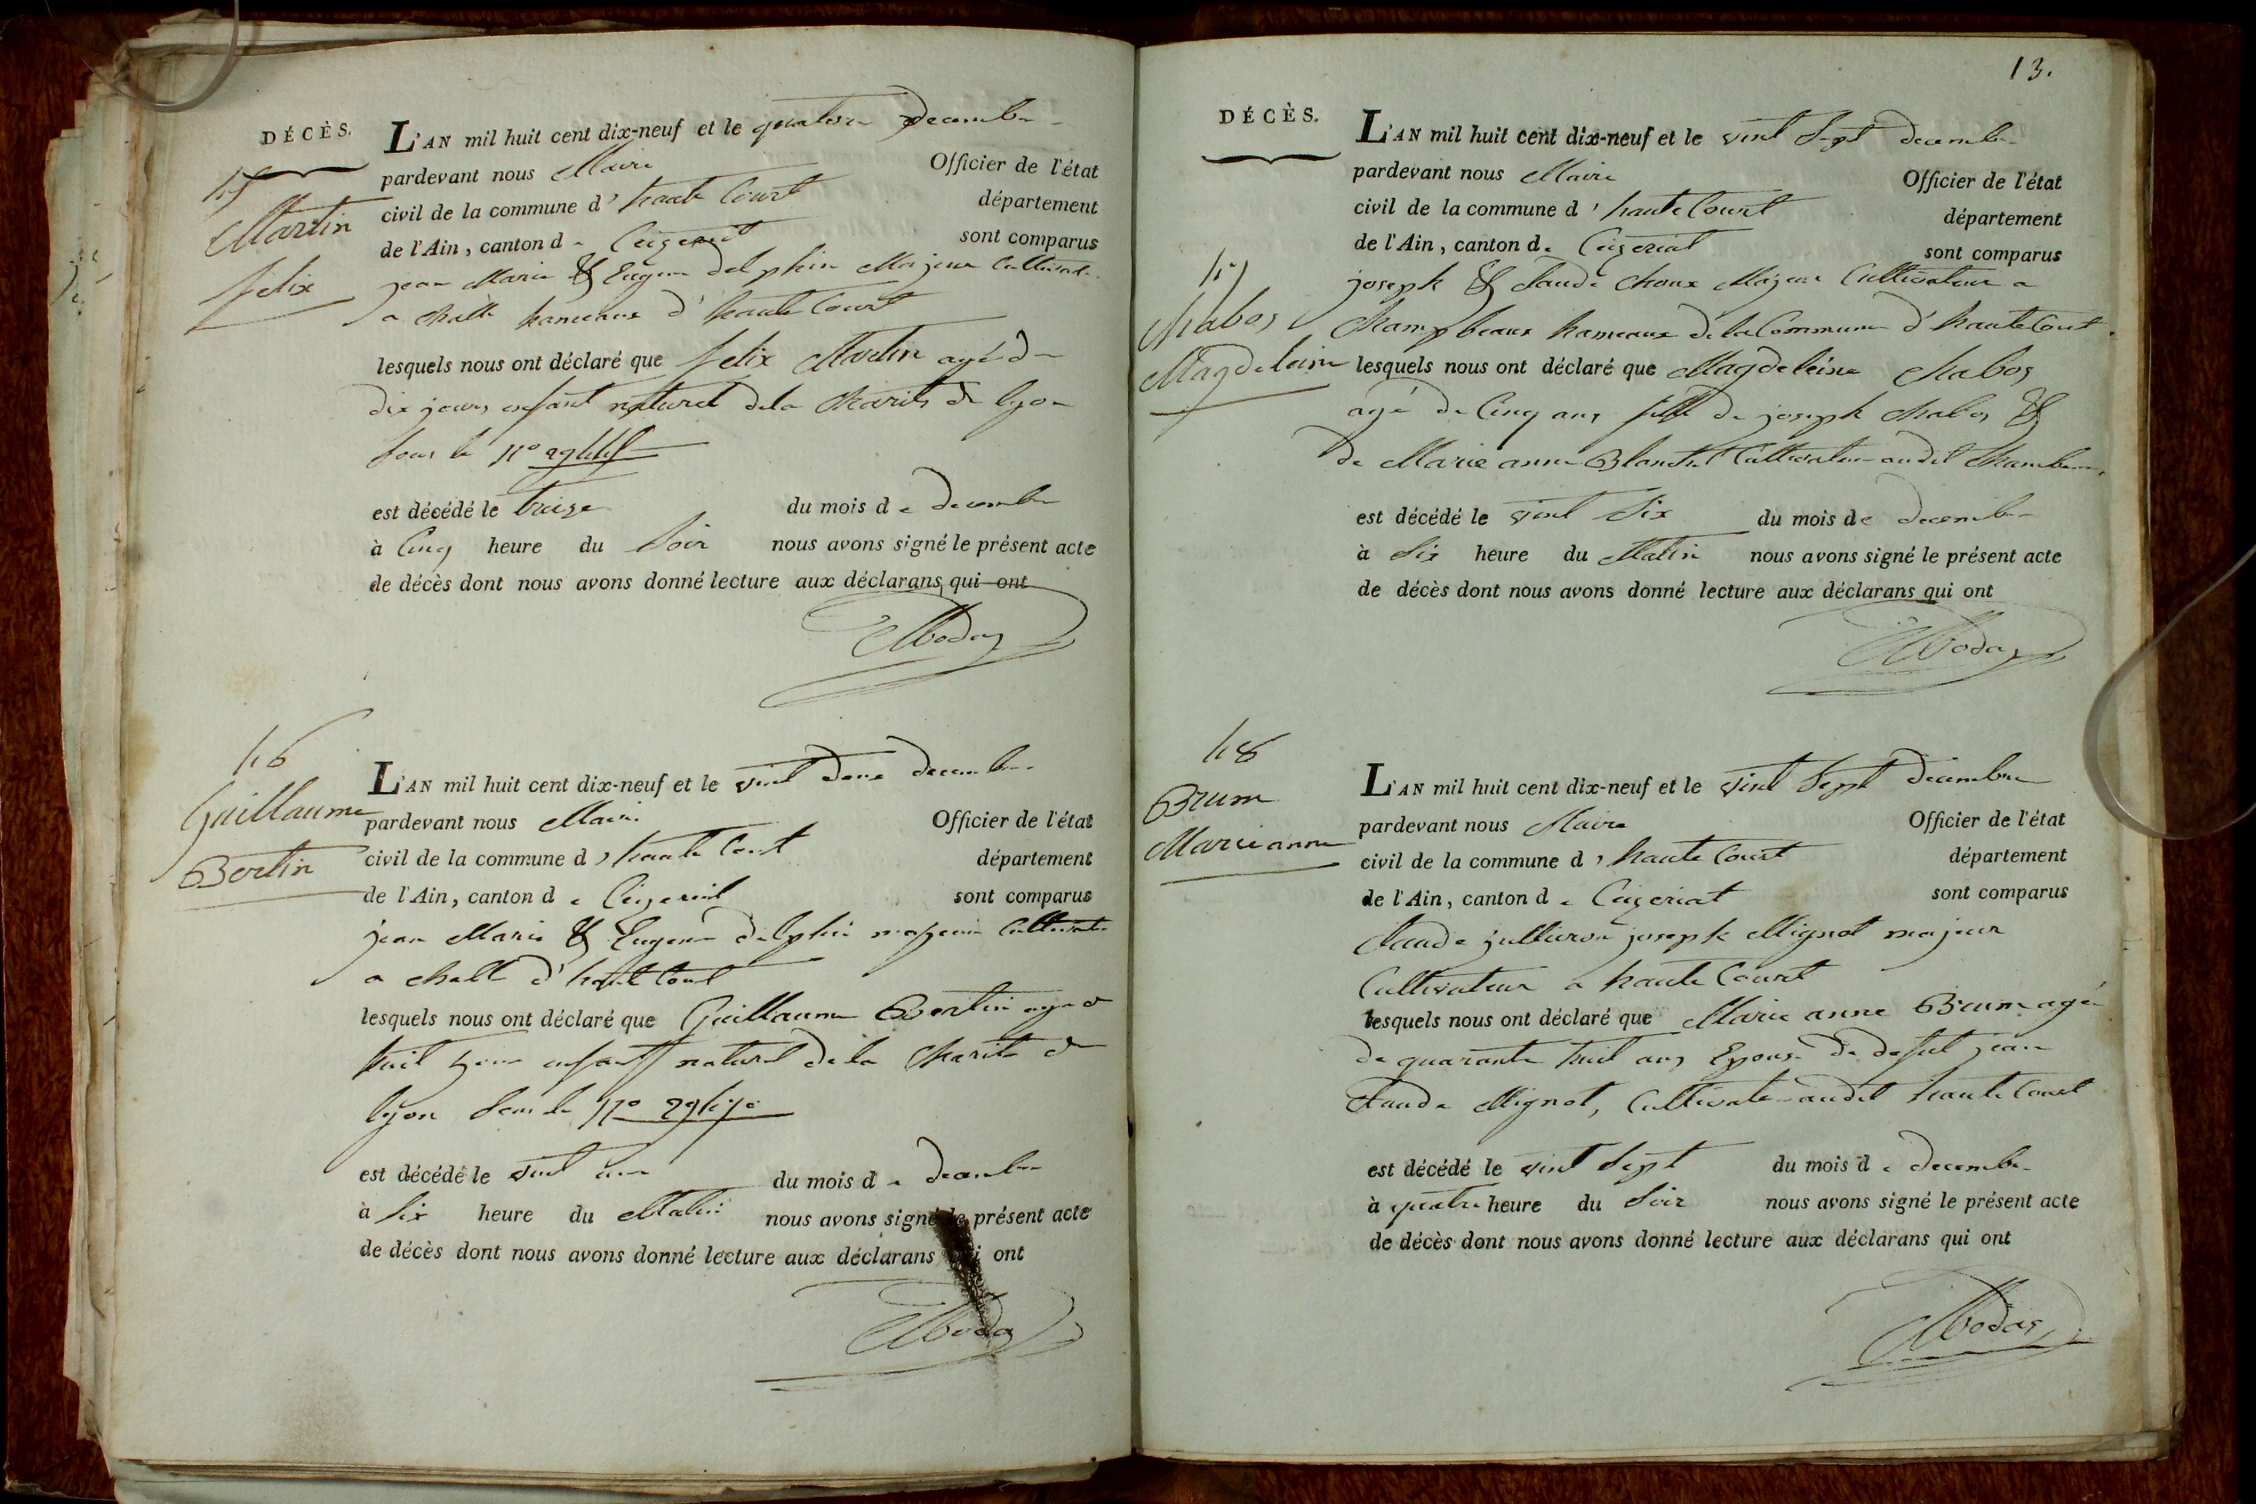 DÉCÈS.
45
Martin
felix
L'AN mil huit cent dix-neuf et le quatorze decembre
pardevant nous Maire Officier de l'état
civil de la commune d'haute Court département
de l'Ain, canton de Ceizeriat sont comparus
jean Marie & Eugene delphin Majeur Cultivat.
a challe hameaux d'haute Court
lesquels nous ont déclaré que felix Martin agé de
dix jours enfant naturel dela charité de lyon
sous le n°
est décédé le treize du mois de decembre
à Cinq heure du Soir nous avons signé le présent acte
de décès dont nous avons donné lecture aux déclarans qui ont
46
Guillaume
Bertin
L'AN mil huit cent dix-neuf et le vint deux decembre
pardevant nous Maire Officier de l'état
civil de la commune d'haute Court département
de l'Ain, canton de Ceizeriat sont comparus
jean Marie & Eugene delphin majeur Cultivat.
a challe d'haute Court
lesquels nous ont déclaré que Guillaume Bertin agé d
huit jour enfant naturel dela charité de
lyon sous le n°
est décédé le vint un du mois de decembre
à Six heure du Matin nous avons signé le présent acte
de décès dont nous avons donné lecture aux déclarans qui ont
13.
DÉCÈS.
47
Chabos
Magdeleine
L'AN mil huit cent dix-neuf et le vint Sept decembre
pardevant nous Maire Officier de l'état
civil de la commune d'haute Court département
de l'Ain, canton de Ceizeriat sont comparus
joseph & Claude Choux Majeur Cultivateur a
Champbeaux hameaux dela Commune d'haute Court
lesquels nous ont déclaré que Magdeleine Chabos
agé de Cinq ans fille de joseph chabos &
de Marie anne Blanchet Cultivateur audit
est décédé le vint Six du mois de decembre
à Six heure du Matin nous avons signé le présent acte
de décès dont nous avons donné lecture aux déclarans qui ont
48
Brum
Marie anne
L'AN mil huit cent dix-neuf et le vint Sept decembre
pardevant nous Maire Officier de l'état
civil de la commune d'haute Court département
de l'Ain, canton de Ceizeriat sont comparus
Claude joseph Mignot majeur
Cultivateur a haute Court
lesquels nous ont déclaré que Marie anne Brum agé
de quarante huit ans Epouse de defut jean
Claude Mignot, Cultivate audit haute Court
est décédé le vint Sept du mois de decembre
à quatre heure du Soir nous avons signé le présent acte
de décès dont nous avons donné lecture aux déclarans qui ont